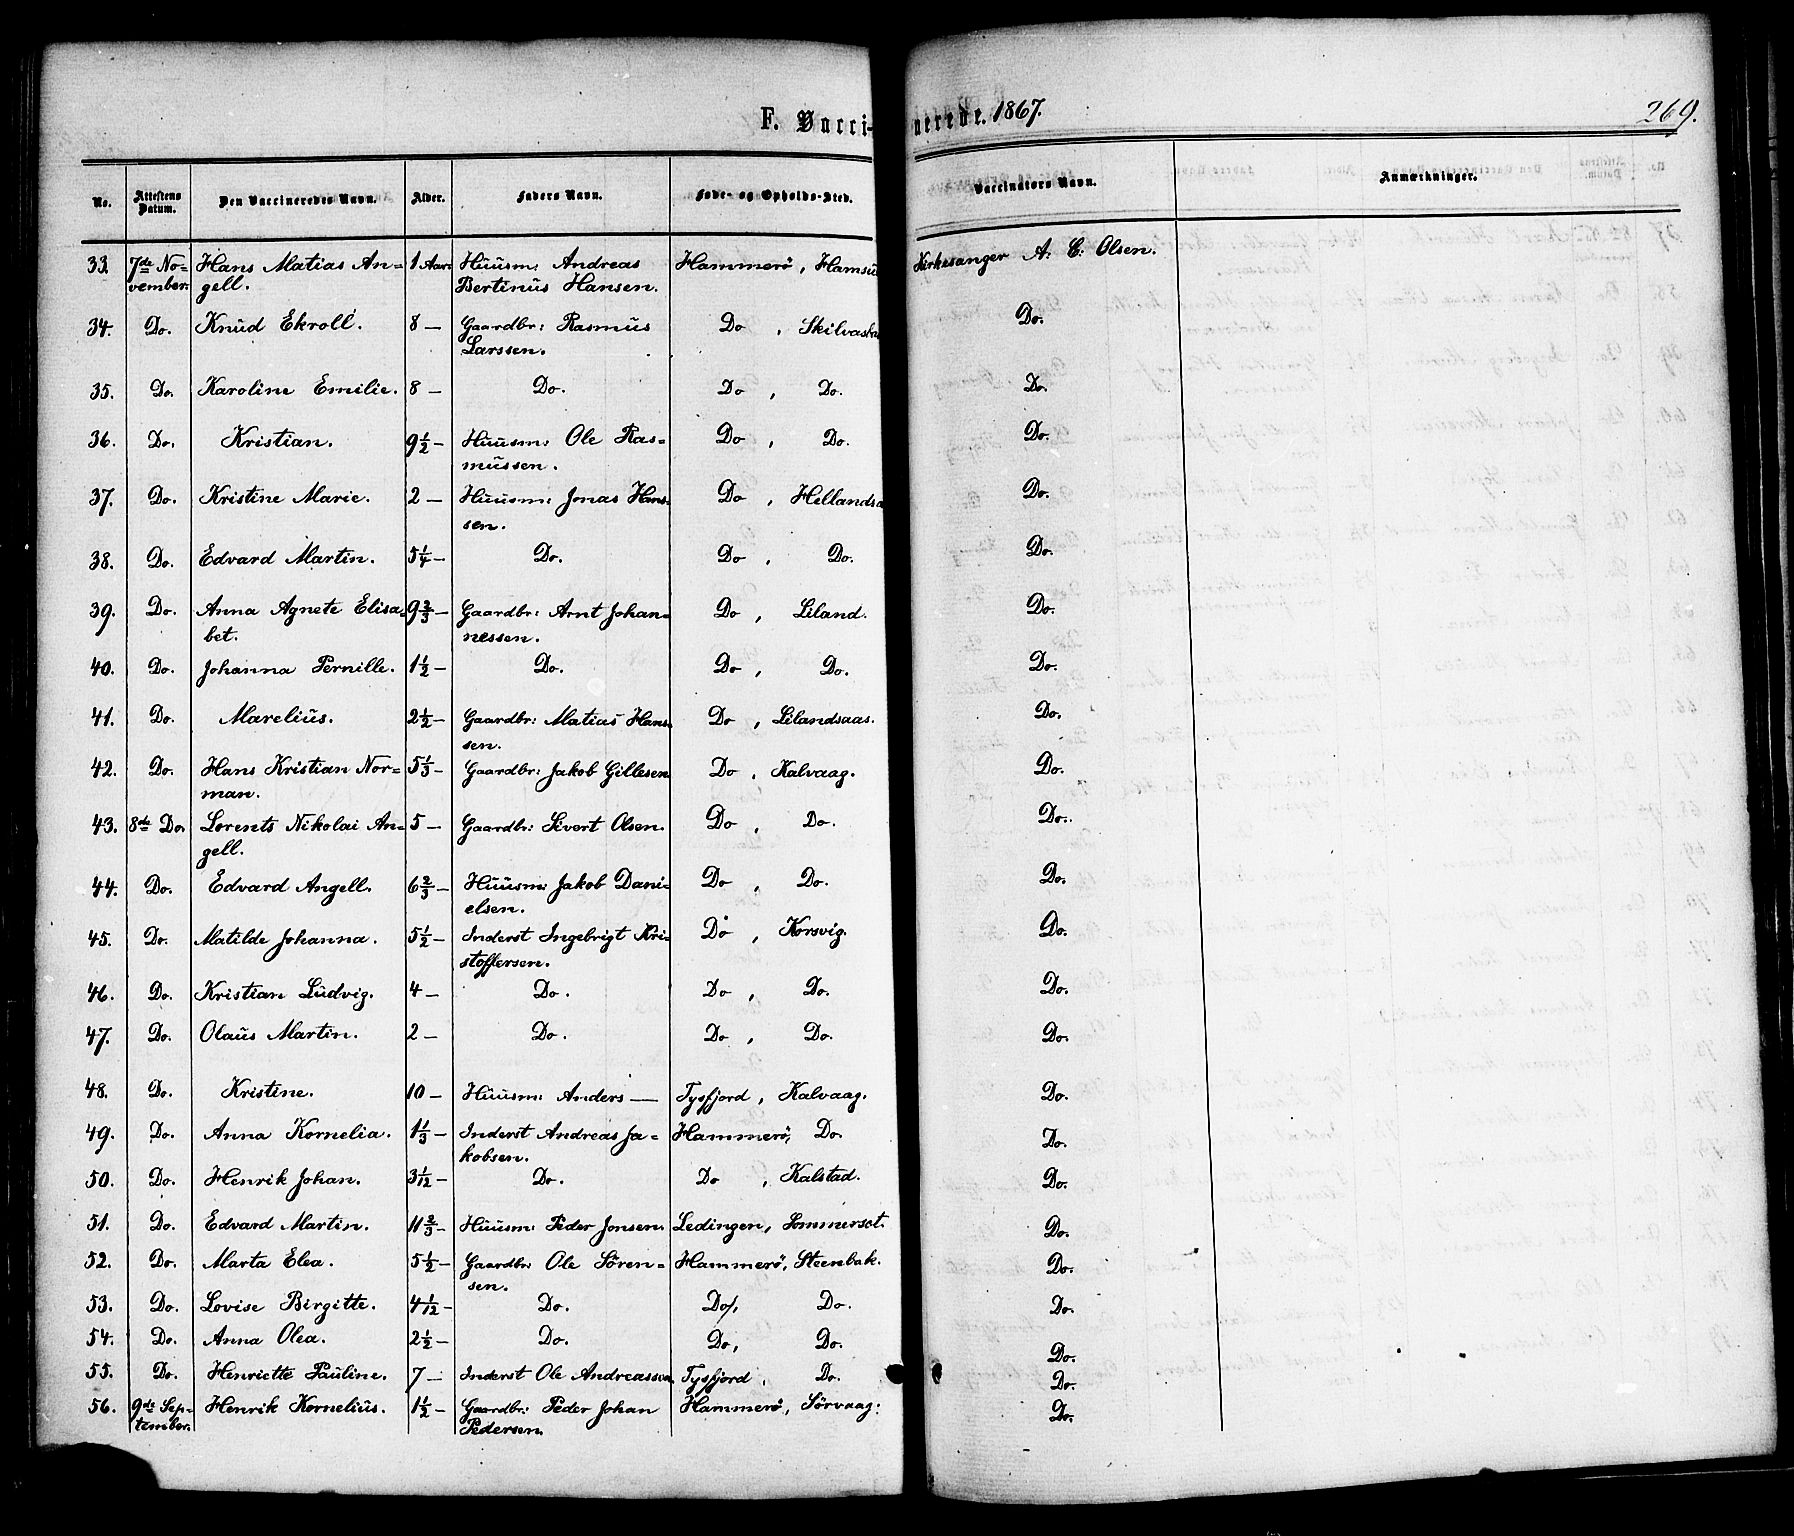 F. Vaccinerede. 1867. 269.
No. Attestens Datum. Den Vaccineredes Navn. Alder. Faders Navn. Føde- og Opholds-Sted. Vaccinatørs Navn. Anmærkninger.
33. 7de No- Hans Matias An- 1 Aar Huusm: Andreas Hammerø, Kirkesanger A. C. Olsen.
vember. gell. Bertinus Hansen.
34. Do. Knud Ekroll. 8 — Gaardbr: Rasmus Do, Do.
Larssen.
35. Do. Karoline Emilie. 8 — Do. Do, Do. Do.
36. Do. Kristian. 9 1/2 — Huusm: Ole Ras- Do, Do. Do.
mussen.
37. Do. Kristine Marie. 2 — Huusm: Jonas Hans- Do, Hellandsa Do.
sen.
38. Do. Edvard Martin. 5 1/4 — Do. Do, Do. Do.
39. Do. Anna Agnete Elisa- 9 2/3 — Gaardbr: Arnt Johan- Do, Liland. Do.
bet. nessen.
40. Do. Johanna Pernille. 1 1/2 — Do. Do, Do. Do.
41. Do. Marelius. 2 1/2 — Gaardbr: Matias Hans- Do, Lilandsaas. Do.
sen.
42. Do. Hans Kristian Nor- 5 1/3 — Gaardbr: Jakob Gillesen Do, Kalvaag. Do.
man.
43. 8de Do. Lorents Nikolai An- 5 — Gaardbr: Sivert Olsen. Do, Do. Do.
gell.
44. Do. Edvard Angell. 6 2/3 — Huusm: Jakob Dani- Do, Do. Do.
elsen.
45. Do. Matilde Johanna. 5 1/2 — Inderst Ingebrigt Kri- Do, Korsvig. Do.
stoffersen.
46. Do. Kristian Ludvig. 4 — Do. Do, Do. Do.
47. Do. Olaus Martin. 2 — Do. Do, Do. Do.
48. Do. Kristine. 10 — Huusm: Anders — Tysfjord, Kalvaag. Do.
49. Do. Anna Kornelia. 1 1/3 — Inderst Andreas Ja- Hammerø, Do. Do.
kobsen.
50. Do. Henrik Johan. 3 1/12 — Do. Do, Kalstad. Do.
51. Do. Edvard Martin. 11 2/3 — Huusm: Peder Jonsen. Ledingen, Sommerset. Do.
52. Do. Marta Elea. 5 1/2 — Gaardbr: Ole Sören- Hammerø, Steenbak. Do.
sen.
53. Do. Lovise Birgitte. 4 1/12 — Do. Do, Do. Do.
54. Do. Anna Olea. 2 1/2 — Do. Do, Do. Do.
55. Do. Henriette Pauline. 7 — Inderst Ole Andreassen. Tysfjord, Do. Do.
56. 9de Sep- Henrik Kornelius. 1 1/2 — Gaardbr: Peder Johan Hammerø, Sörvaag: Do.
tember. Pedersen.